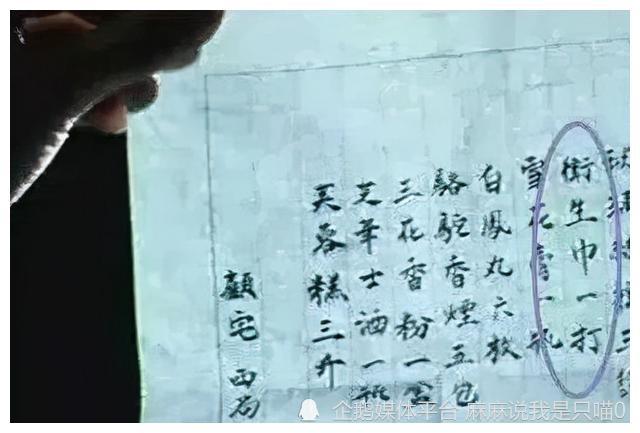 衛生巾一打
雪花膏一瓶
白鳳丸六枚
駱駝香煙五包
三花香粉一盒
芝華士酒一瓶
芙蓉糕三斤
顧宅
企鹅媒体平台 麻麻说我是只喵0